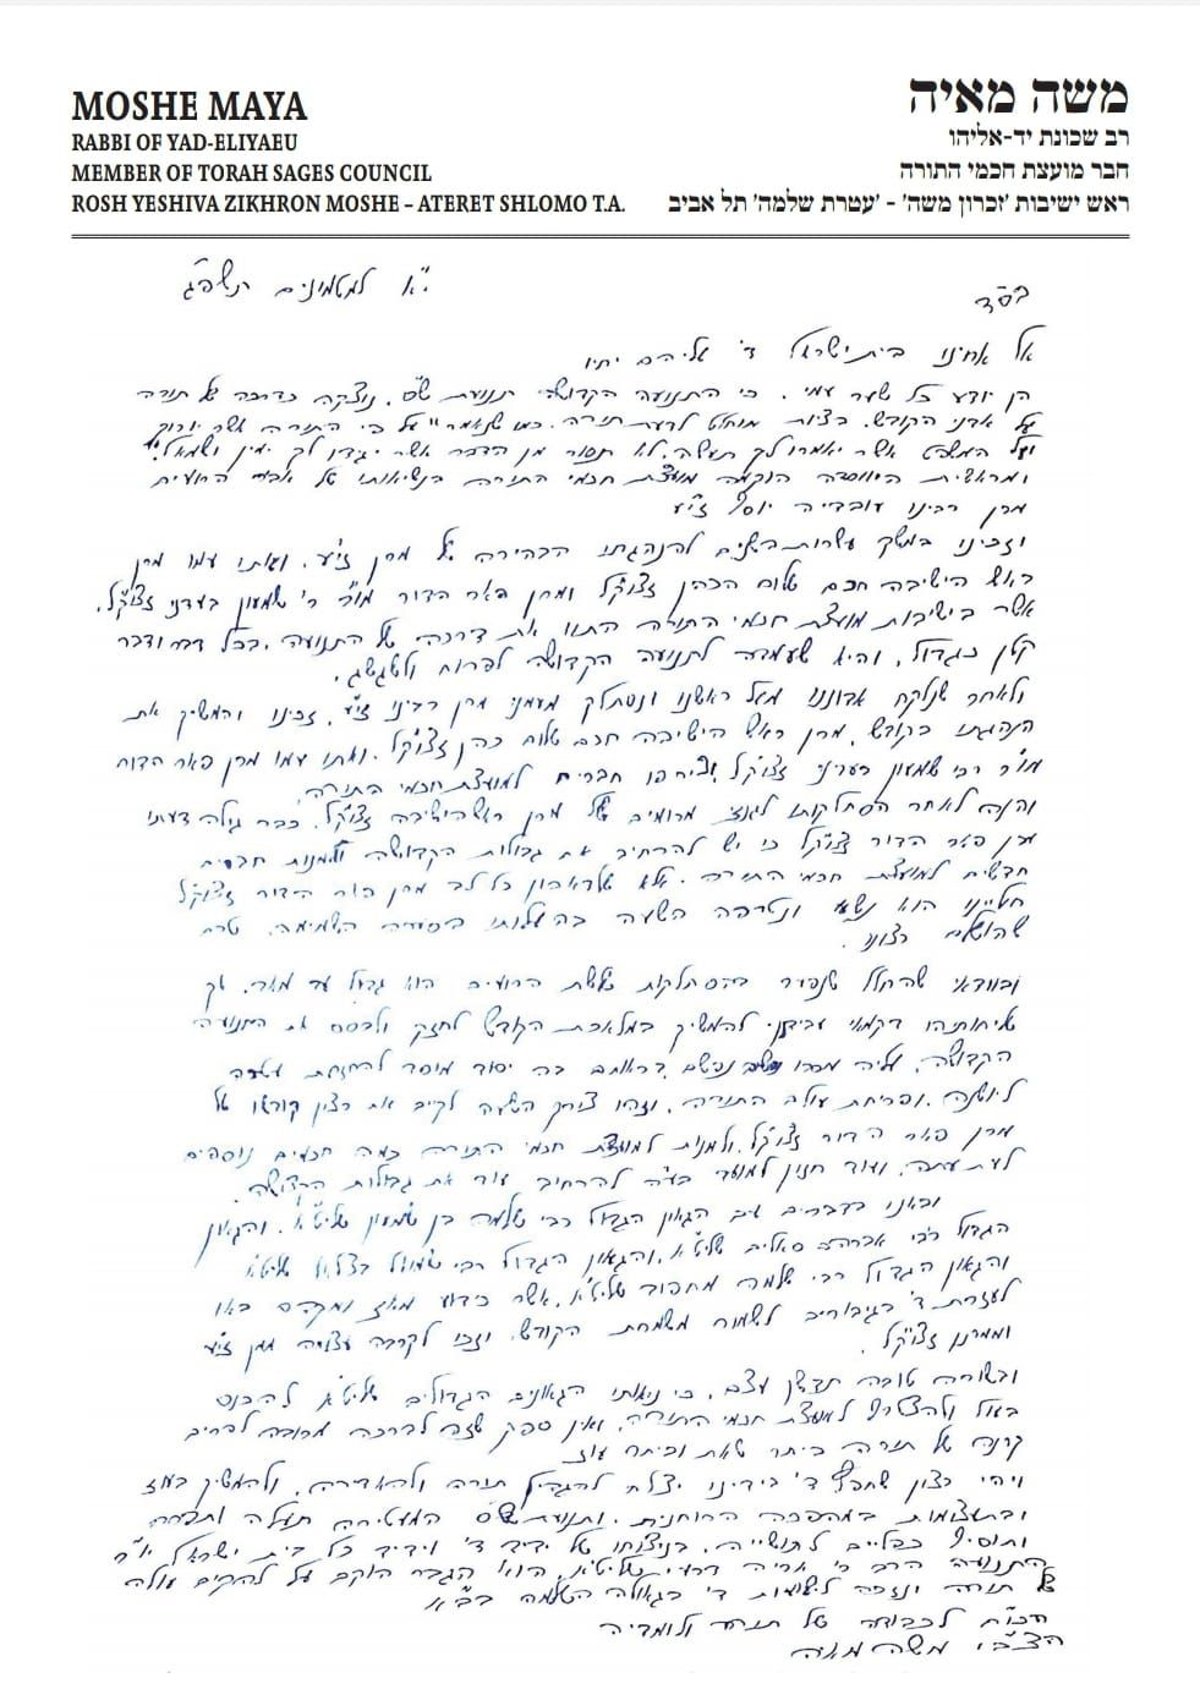 MOSHE MAYA
RABBI OF YAD-ELIYAEU
MEMBER OF TORAH SAGES COUNCIL
ROSH YESHIVA ZIKHRON MOSHE – ATERET SHLOMO T.A.
משה מאיה
רב שכונת יד-אליהו
חבר מועצת חכמי התורה
ראש ישיבות 'זכרון משה' - 'עטרת שלמה' תל אביב
י"א למטמונים תשפ"ג
בס"ד
אל אחינו בית ישראל ד' עליהם יחיו
הן יודע כל שער עמי, כי התנועה הקדושה תנועת ש"ס, נוצקה כדרכה של תורה
על אדני הקודש, בציות מוחלט לדעת תורה, כמו שנאמר "על פי התורה אשר יורוך
ועל המשפט אשר יאמרו לך תעשה, לא תסור מן הדבר אשר יגידו לך ימין ושמאל"
ומראשית היווסדה הוקמה מועצת חכמי התורה בנשיאותו של אביר הרועים
מרן רבינו עובדיה יוסף זי"ע
וזכינו במשך עשרות השנים להנהגתו הבהירה של מרן זי"ע, ואתו עמו מרן
ראש הישיבה חכם שלום הכהן זצוק"ל ומרן פאר הדור מו"ר ר' שמעון בעדני זצוק"ל,
אשר בישיבות מועצת חכמי התורה התוו את דרכה של התנועה, בכל דבר ודבר
קטן כגדול, והיא שעמדה לתנועה הקדושה לפרוח ולשגשג.
ולאחר שנלקח אדוננו מעל ראשנו ונסתלק מעמנו מרן רבינו זי"ע, זכינו והמשיך את
הנהגתו בקודש, מרן ראש הישיבה חכם שלום כהן זצוק"ל, ואתו עמו מרן פאר הדור
מו"ר רבי שמעון בעדני זצוק"ל וצירפו חברים למועצת חכמי התורה,
והנה לאחר הסתלקותו לגנזי מרומים של מרן ראש הישיבה זצוק"ל, כבר גילה דעתו
מרן פאר הדור זצוק"ל כי יש להרחיב את גבולות הקדושה ולמנות חברים
חדשים למועצת חכמי התורה, אלא שלדאבון כל לב מרן פאר הדור זצוק"ל
חטאינו הוא נשא ונטרפה השעה בהעלותו בסערה השמימה, טרם
שהושלם רצונו.
ובוודאי שהחלל שנפער בהסתלקות שלשת הרועים הוא גדול עד מאוד, אך
שליחותייהו דקמאי עבידנן להמשיך במלאכת הקודש לחזק ולבסס את התנועה
הקדושה, עליה מסרו נפשם בראותם בה יסוד מוסד להחזרת עטרה
ליושנה, ופריחת עולם התורה, וזהו צורך השעה לקיים את רצון קודשו של
מרן פאר הדור זצוק"ל, ולמנות למועצת חכמי התורה כמה חכמים נוספים
לעת עתה, ועוד חזון למועד בע"ה להרחיב עוד את גבולות הקדושה.
ובאנו בדברים עם הגאון הגדול רבי שלמה בן שמעון שליט"א, והגאון
הגדול רבי אברהם סאלים שליט"א, והגאון הגדול רבי שמואל בצלאל שליט"א
והגאון הגדול רבי שלמה מחפוד שליט"א, אשר כידוע מאז ומקדם באו
לעזרת ד' בגיבורים לשמור משמרת הקודש, וזכו לקרבה עצומה ממרן זי"ע
וממרנן זצוק"ל.
ובשורה טובה תדשן עצם, כי ניאותו הגאונים הגדולים שליט"א להכנס
בעול ולהצטרף למועצת חכמי התורה, ואין ספק שזה לברכה מרובה להרים
קרנה של תורה ביתר שאת וביתר עוז
ויהי רצון שחפץ ד' בידינו יצלח להגדיל תורה ולהאדירה, ולהמשיך בעוז
ובתעצומות במהפכה הרוחנית, ותנועת ש"ס המעטירה תעלה ותפרח
ותוסיף כפליים לתושייה, בניצוחו של ידיד ד' וידיד כל בית ישראל יו"ר
התנועה הרב ר' אריה דרעי שליט"א, הוא הגבר הוקם על להקים עולה
של תורה ונזכה לישועות ד' בגאולה השלמה בב"א
הכו"ח לכבודה של תורה ולומדיה
הצב"י משה מאיה